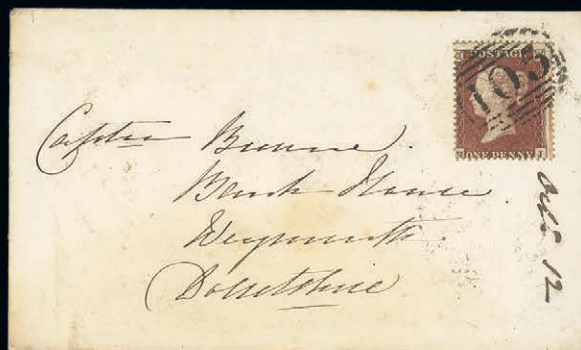 POSTAGE
105
ONE PENNY
Captn Browne.
Bank House
Weymouth.
Dorsetshire
12